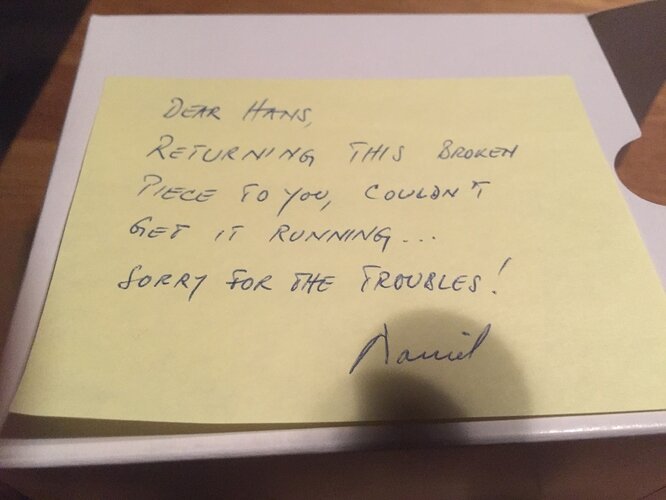 DEAR HANS,
RETURNING THIS BROKEN
PIECE TO YOU, COULDN'T
GET IT RUNNING...
SORRY FOR THE TROUBLES!
Daniel